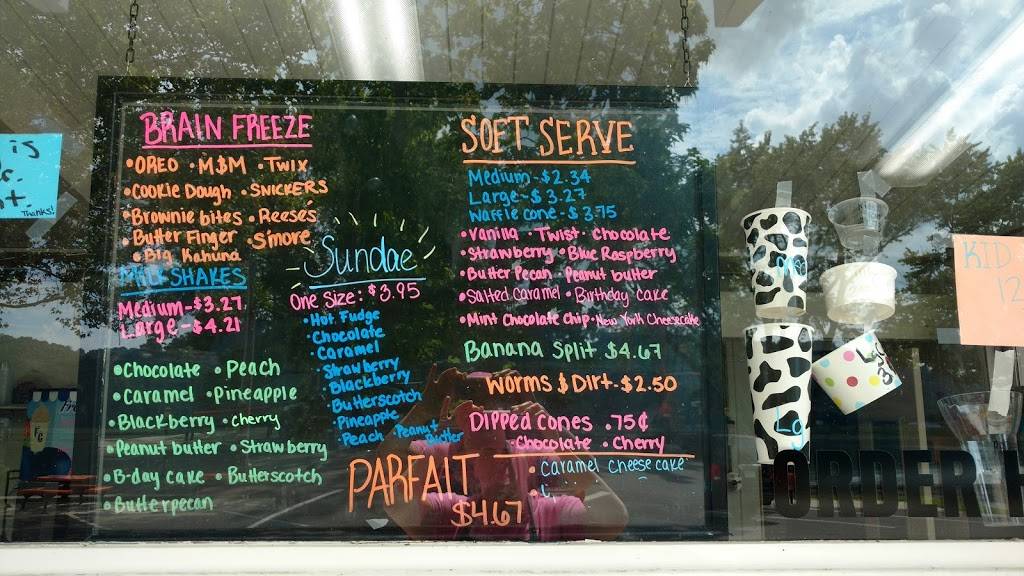 is
Thanks!
BRAIN FREEZE
•OREO •M$M •TWIX
•COOKIE Dough •SNICKERS
•Brownie bites •Reese's
•Butter Finger •S'more
•Big Kahuna
MILKSHAKES
Medium-$3.27
Large-$4.21
•Chocolate •Peach
•Caramel •Pineapple
•Blackberry •cherry
•Peanut butter •Strawberry
•B-day cake •Butterscotch
•Butterpecan
Sundae
One Size: $3.95
•Hot Fudge
•Chocolate
•Caramel
•Strawberry
•Blackberry
•Butterscotch
•Pineapple
•Peach •Peanut Butter
SOFT SERVE
Medium-$2.34
Large-$3.27
Waffle cone-$3.75
•Vanilla •Twist •Chocolate
•Strawberry •Blue Raspberry
•Butter Pecan •Peanut butter
•Salted Caramel •Birthday Cake
•Mint Chocolate Chip •New York Cheesecake
Banana Split $4.67
Worms $ Dirt-$2.50
Dipped cones .75¢
•Chocolate •Cherry
PARFAIT
$4.67
•Caramel cheesecake
Lg
KID
12
ORDER H